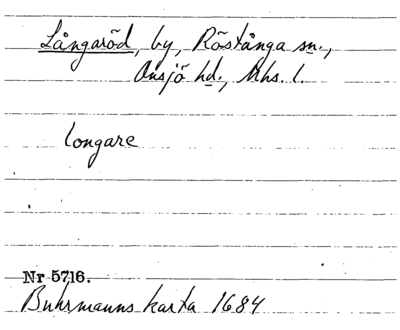 Långaröd, by, Röstånga sn.,
Onsjö hd., Mhs. l.
longare
Nr 5716.
Buhrmanns karta 1684